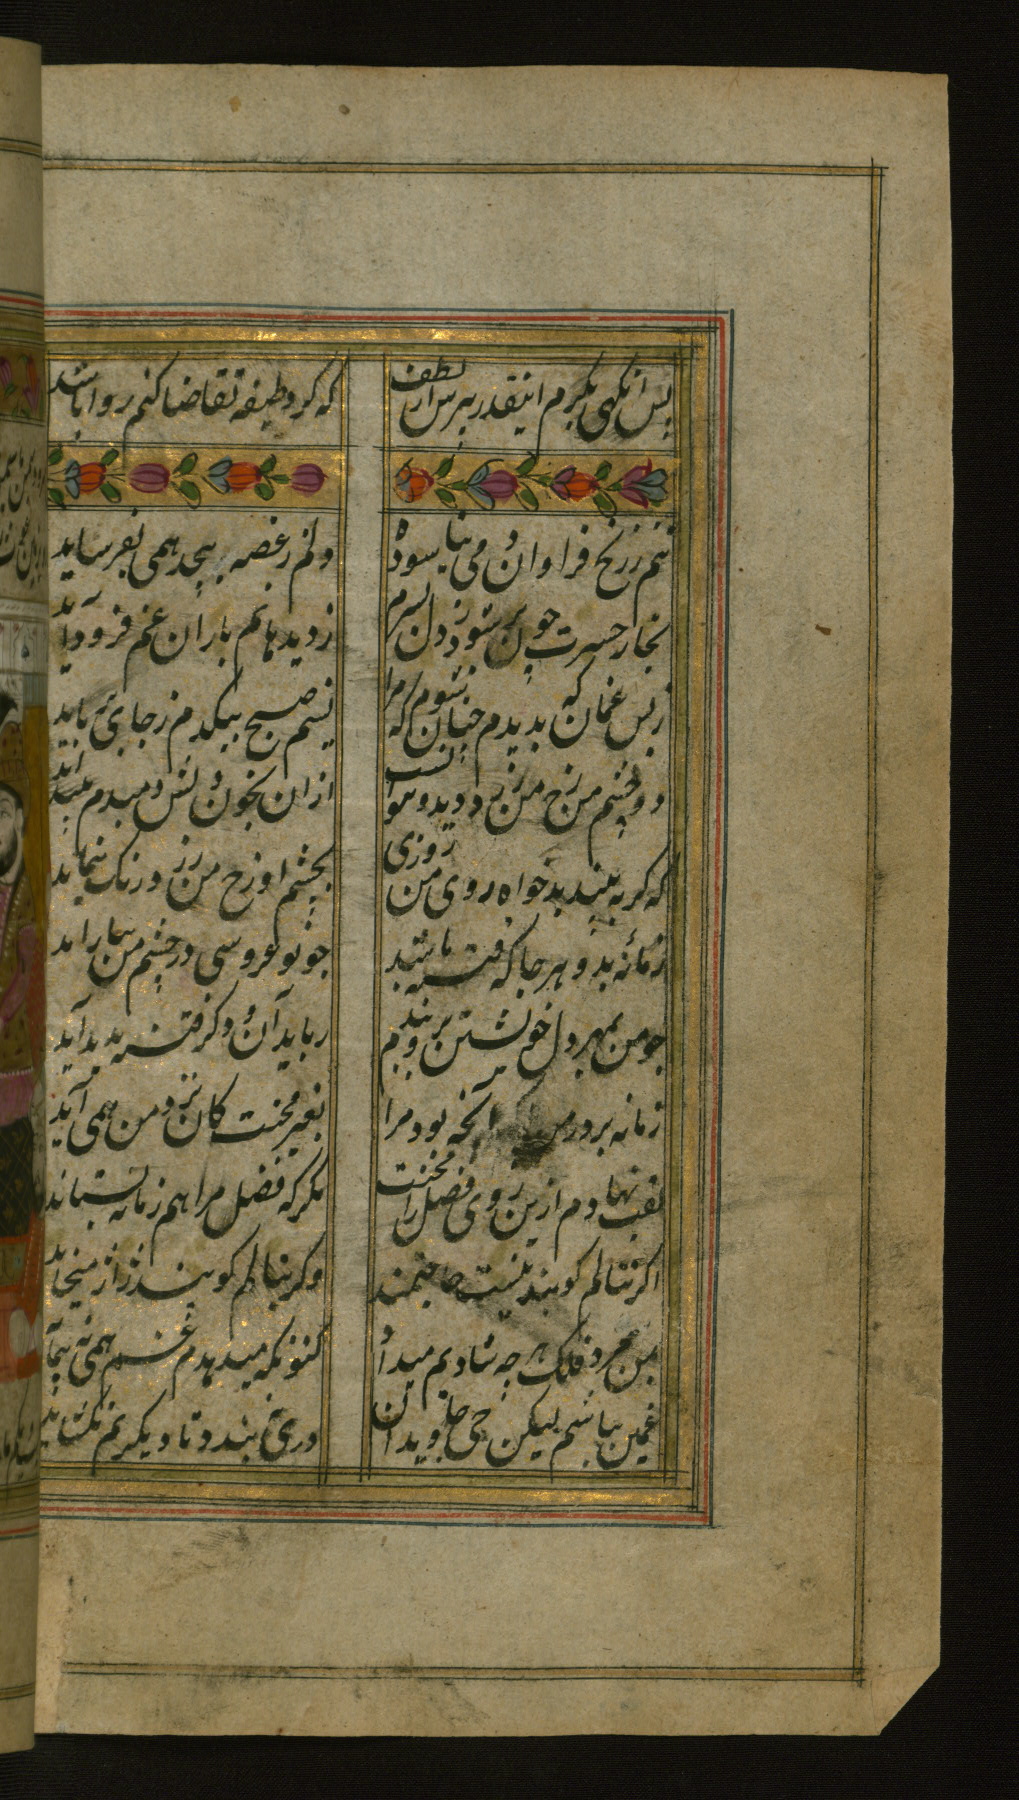 پس انکهی بکرم اینقدر بپرس از لطف
که کر وظیفه تقاضا کنم روا باشد
تنم ز رنج فراوان همی نیاسوده
دلم ز غصه به پیچد همی بفرساید
بخار حسرت چون بر شود ز دل بسرم
ز دیدهانم باران غم فرود آید
ز بس غمان که بدیدم چنان شوم که مرا
نسیم صبح بیکدم ز جای برباید
دو چشم من رخ من زرد دید نتوانست
از ان بخون دلش دمبدم بیند آید
که کر به بیند بدخواه روی من روزی
بچشم او رخ من زرد رنک ننماید
زمانهٔ بد و هر جا که فتنه باشد
چو نو عروسی در چشم من بیاراید
چو من بمهر دل خویشتن برو بندم
رباید آن و دکر فتنه پدید آید
زمانه برد ز من آنچه بود مرا
بغیر محنت کان نزد من همی آید
لقب نهادم ازین روی فضل را محنت
مکر که فضل مرا هم ز من نستاند
اکر ننالم کویند نیست حاجتمند
وکر بنالم کویند ژاژ میخاید
من جرد فلک هر چه شادیم میداد
کنونکه میدهدم غم همی نه پیماید
غمین نباشم لیکن حی جاویدان
دری نبندد تا دیکرم نکشاید